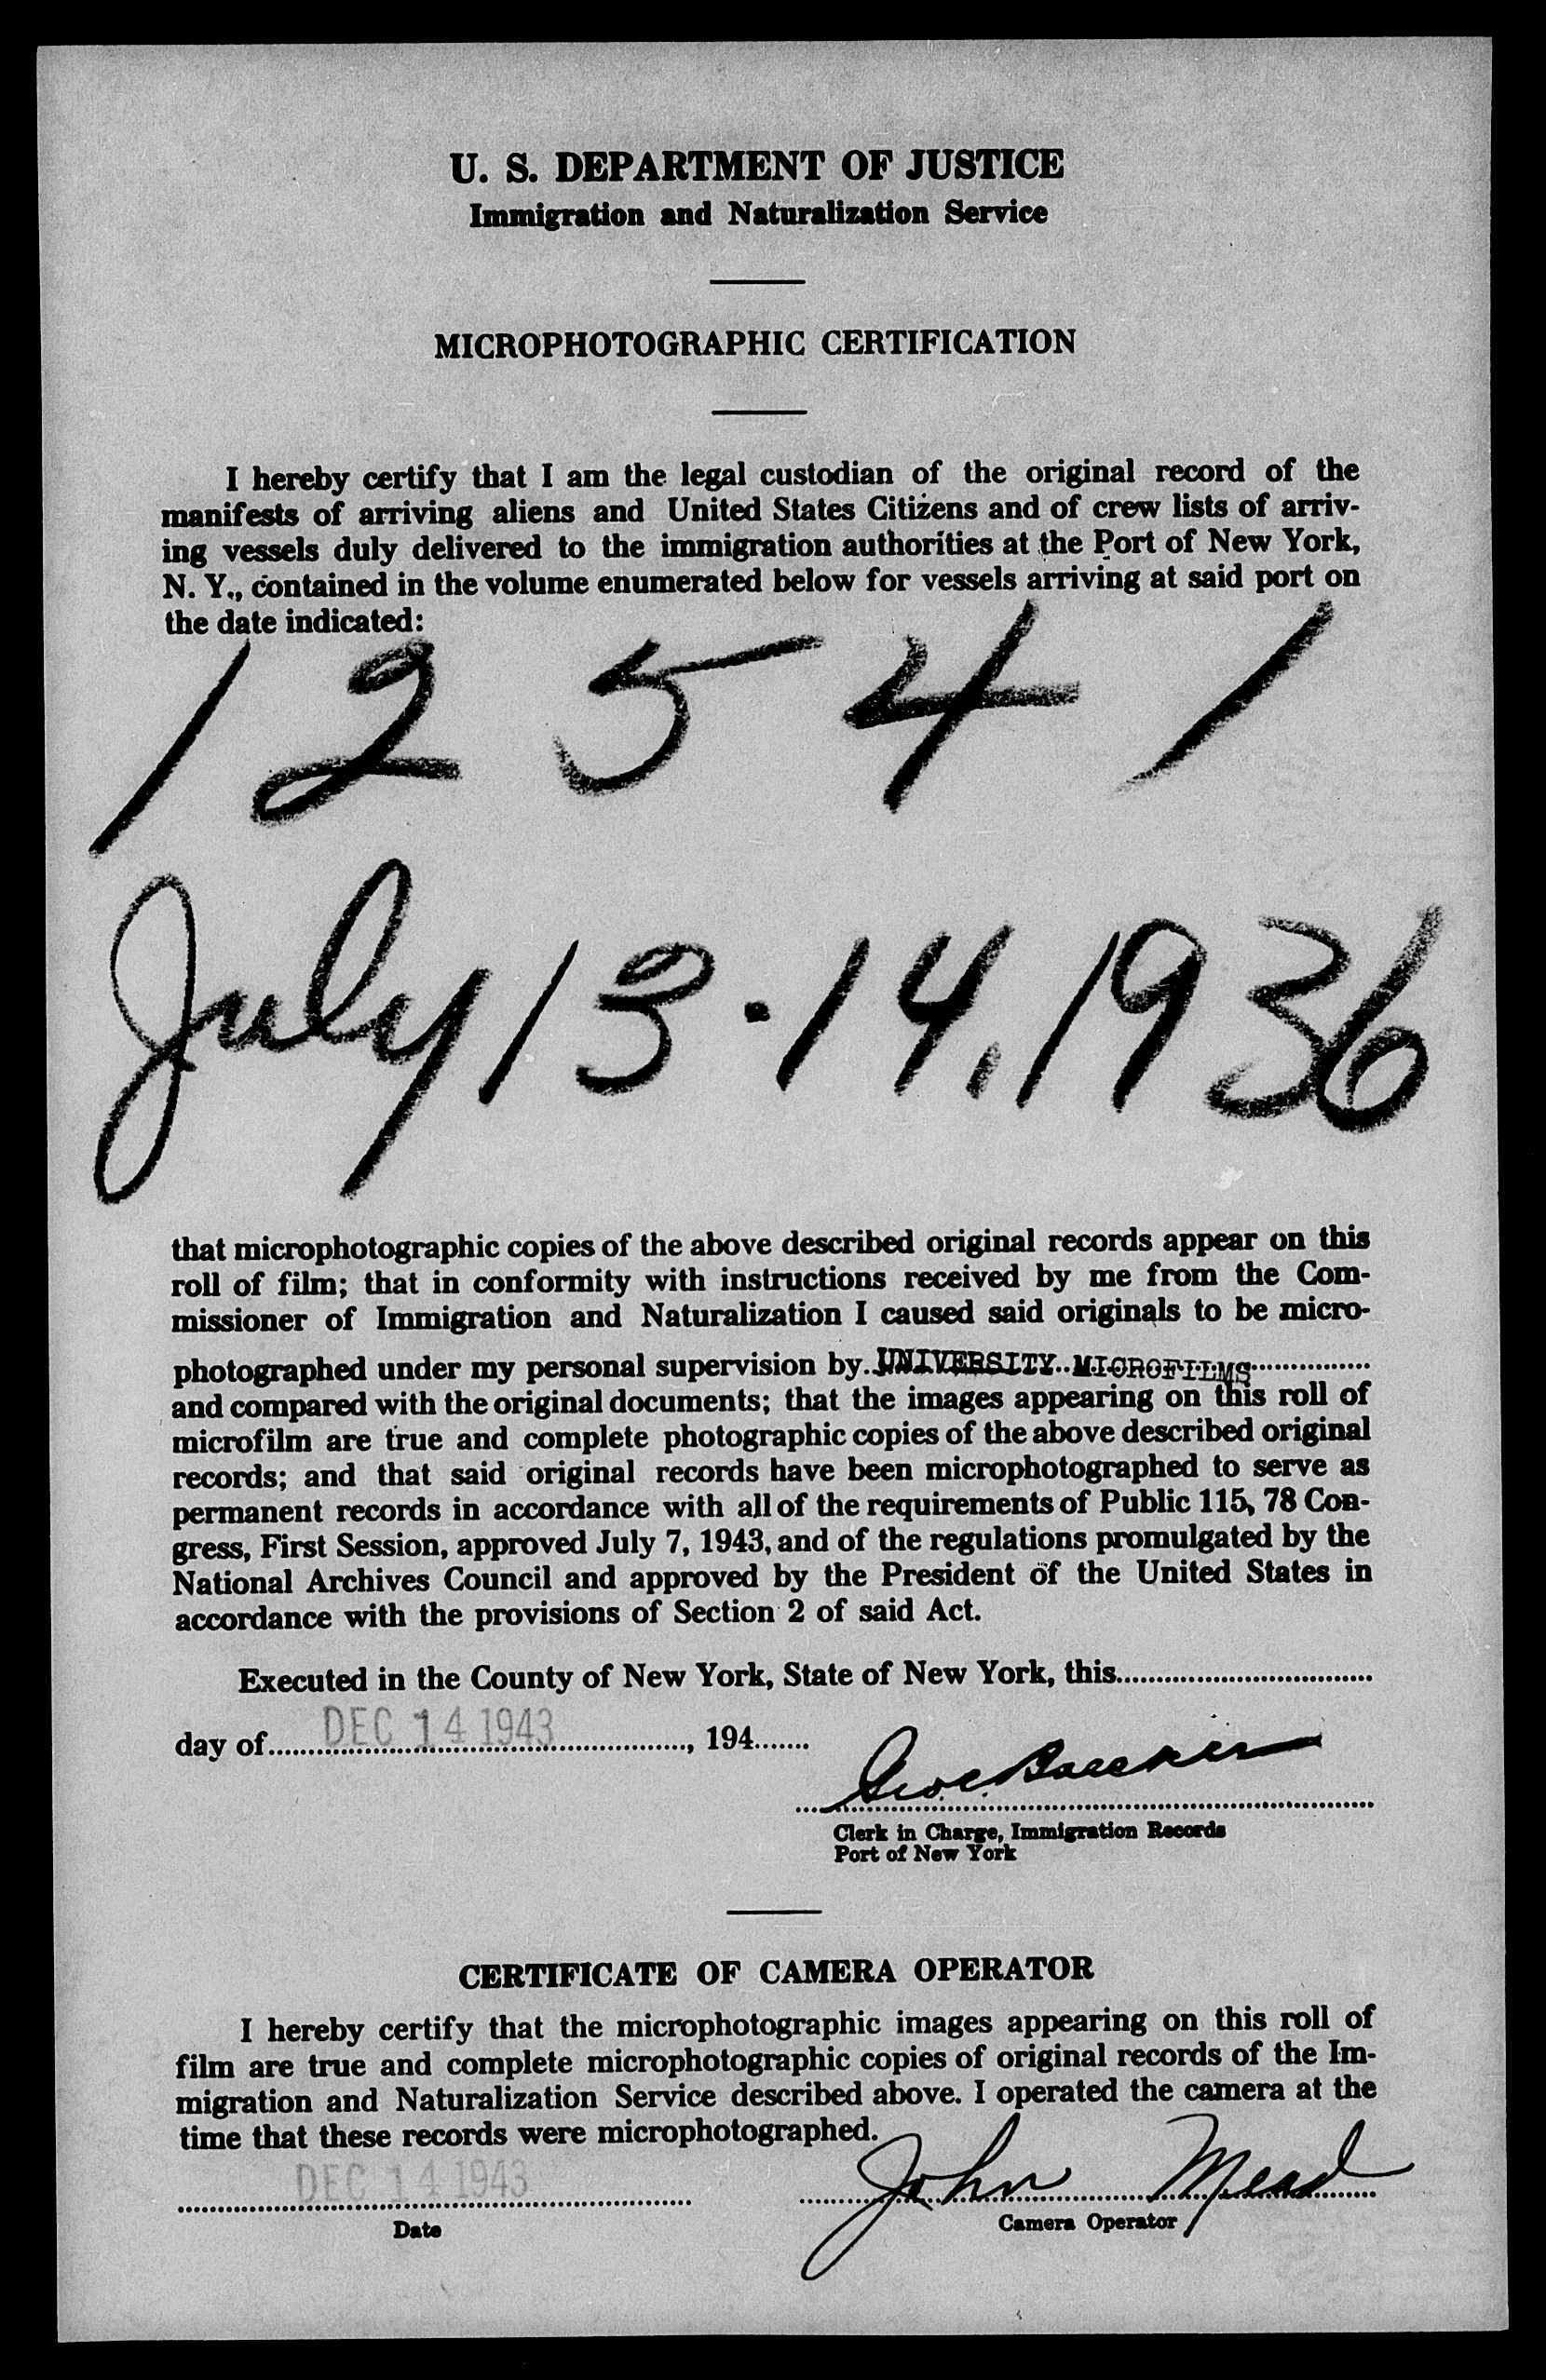 U. S. DEPARTMENT OF JUSTICE
Immigration and Naturalization Service
MICROPHOTOGRAPHIC CERTIFICATION
I hereby certify that I am the legal custodian of the original record of the
manifests of arriving aliens and United States Citizens and of crew lists of arriv-
ing vessels duly delivered to the immigration authorities at the Port of New York,
N. Y., contained in the volume enumerated below for vessels arriving at said port on
the date indicated:
12541
July 13-14, 1936
that microphotographic copies of the above described original records appear on this
roll of film; that in conformity with instructions received by me from the Com-
missioner of Immigration and Naturalization I caused said originals to be micro-
photographed under my personal supervision by UNIVERSITY MICROFILMS
and compared with the original documents; that the images appearing on this roll of
microfilm are true and complete photographic copies of the above described original
records; and that said original records have been microphotographed to serve as
permanent records in accordance with all of the requirements of Public 115, 78 Con-
gress, First Session, approved July 7, 1943, and of the regulations promulgated by the
National Archives Council and approved by the President of the United States in
accordance with the provisions of Section 2 of said Act.
Executed in the County of New York, State of New York, this
day of DEC 14 1943, 194
Geo. C. Baecker
Clerk in Charge, Immigration Records
Port of New York
CERTIFICATE OF CAMERA OPERATOR
I hereby certify that the microphotographic images appearing on this roll of
film are true and complete microphotographic copies of original records of the Im-
migration and Naturalization Service described above. I operated the camera at the
time that these records were microphotographed.
DEC 14 1943 John Mead
Date Camera Operator